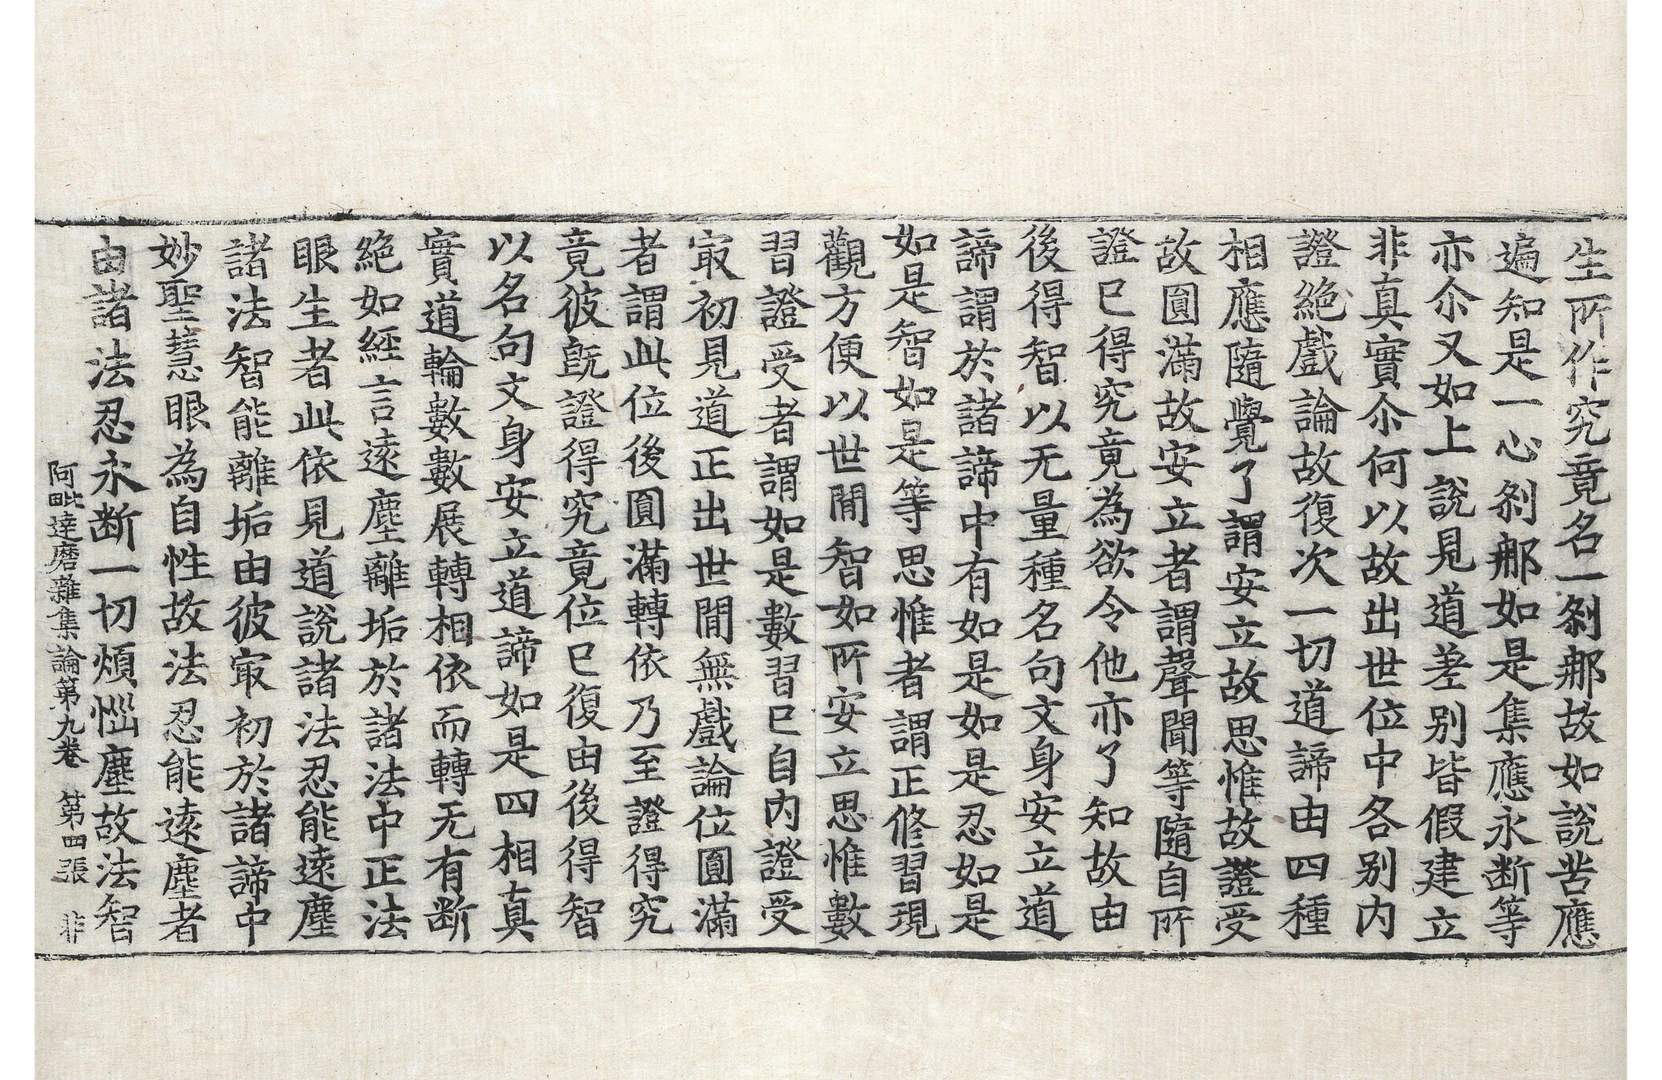 生所作究竟名一剎那故如說苦應
遍知是一心剎那如是集應永断等
亦尒又如上說見道差別皆假建立
非真實尒何以故出世位中各別內
證絕戲論故復次一切道諦由四種
相應隨覺了謂安立故思惟故證受
故圓滿故安立者謂聲聞等隨自所
證已得究竟為欲令他亦了知故由
後得智以无量種名句文身安立道
諦謂於諸諦中有如是如是忍如是
如是智如是等思惟者謂正修習現
觀方便以世間智如所安立思惟數
習證受者謂如是數習已自內證受
㝡初見道正出世間無戲論位圓滿
者謂此位後圓滿轉依乃至證得究
竟彼旣證得究竟位已復由後得智
以名句文身安立道諦如是四相真
實道輪數數展轉相依而轉无有断
絕如經言遠塵離垢於諸法中正法
眼生者此依見道說諸法忍能遠塵
諸法智能離垢由彼㝡初於諸諦中
妙聖慧眼為自性故法忍能遠塵者
由諸法忍永断一切煩惱塵故法智
阿毗達磨雜集論第九卷　第四張　非